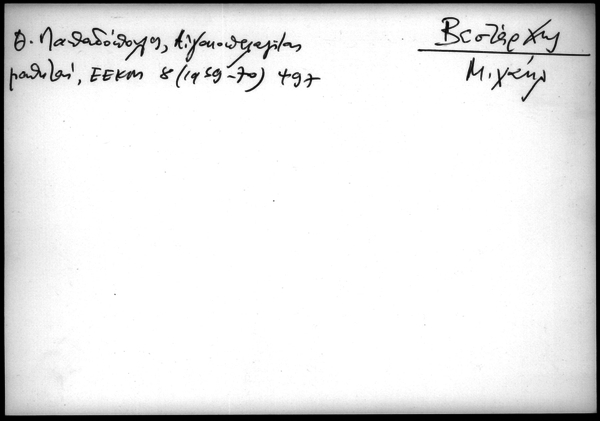 Θ. Παπαδόπουλος, Αἰγαιοπελαγῖται
μαθηταί, ΕΕΚΜ 8 (1969-70) 497
Βεστάρχης
Μιχαήλ